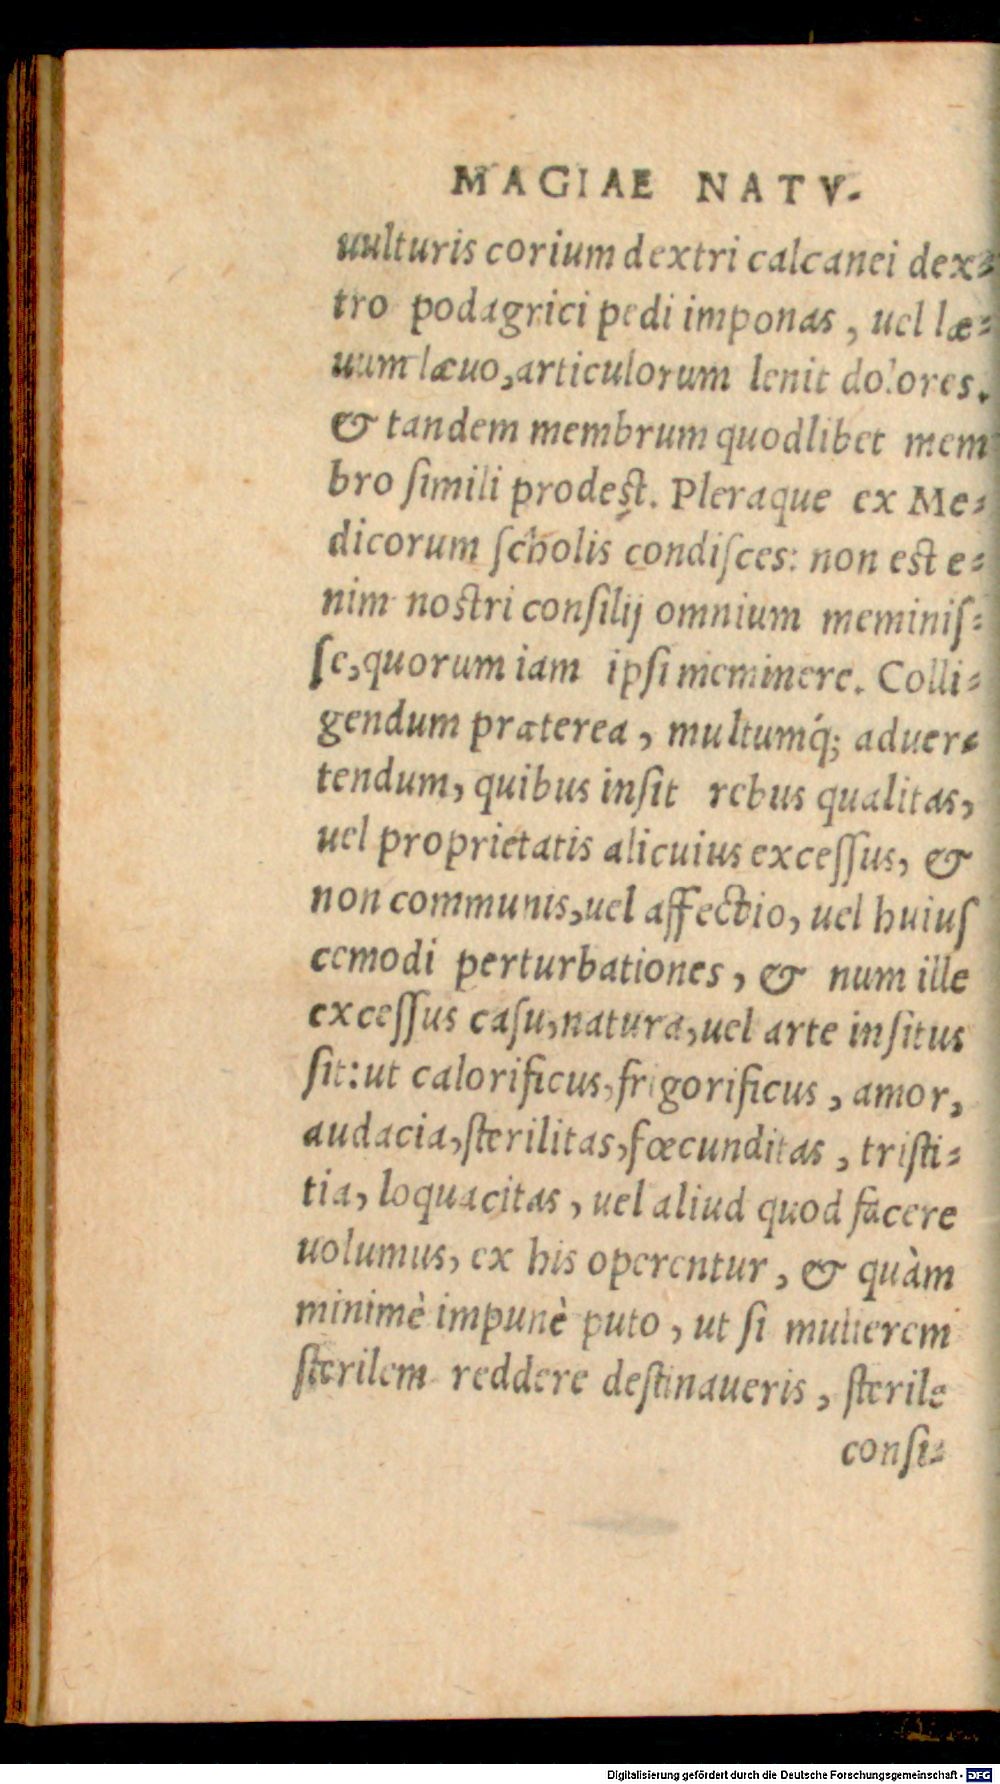 MAGIAE NATV-
uulturis corium dextri calcanei dex-
tro podagrici pedi imponas, uel læ-
uum læuo, articulorum lenit dolores.
& tandem membrum quodlibet mem
bro ſimili prodeſt. Pleraque ex Me-
dicorum ſcholis condiſces: non eſt e-
nim noſtri conſilij omnium meminiſ-
ſe, quorum iam ipſi meminere. Colli-
gendum præterea, multumq́; aduer-
tendum, quibus inſit rebus qualitas,
uel proprietatis alicuius exceſſus, &
non communis, uel affectio, uel huiuſ
cemodi perturbationes, & num ille
exceſſus caſu, natura, uel arte inſitus
ſit: ut calorificus, frigorificus, amor,
audacia, ſterilitas, fœcunditas, triſti-
tia, loquacitas, uel aliud quod facere
uolumus, ex his operentur, & quàm
minimè impunè puto, ut ſi mulierem
ſterilem reddere deſtinaueris, ſterile
conſi-
Digitalisierung gefördert durch die Deutsche Forschungsgemeinschaft - DFG